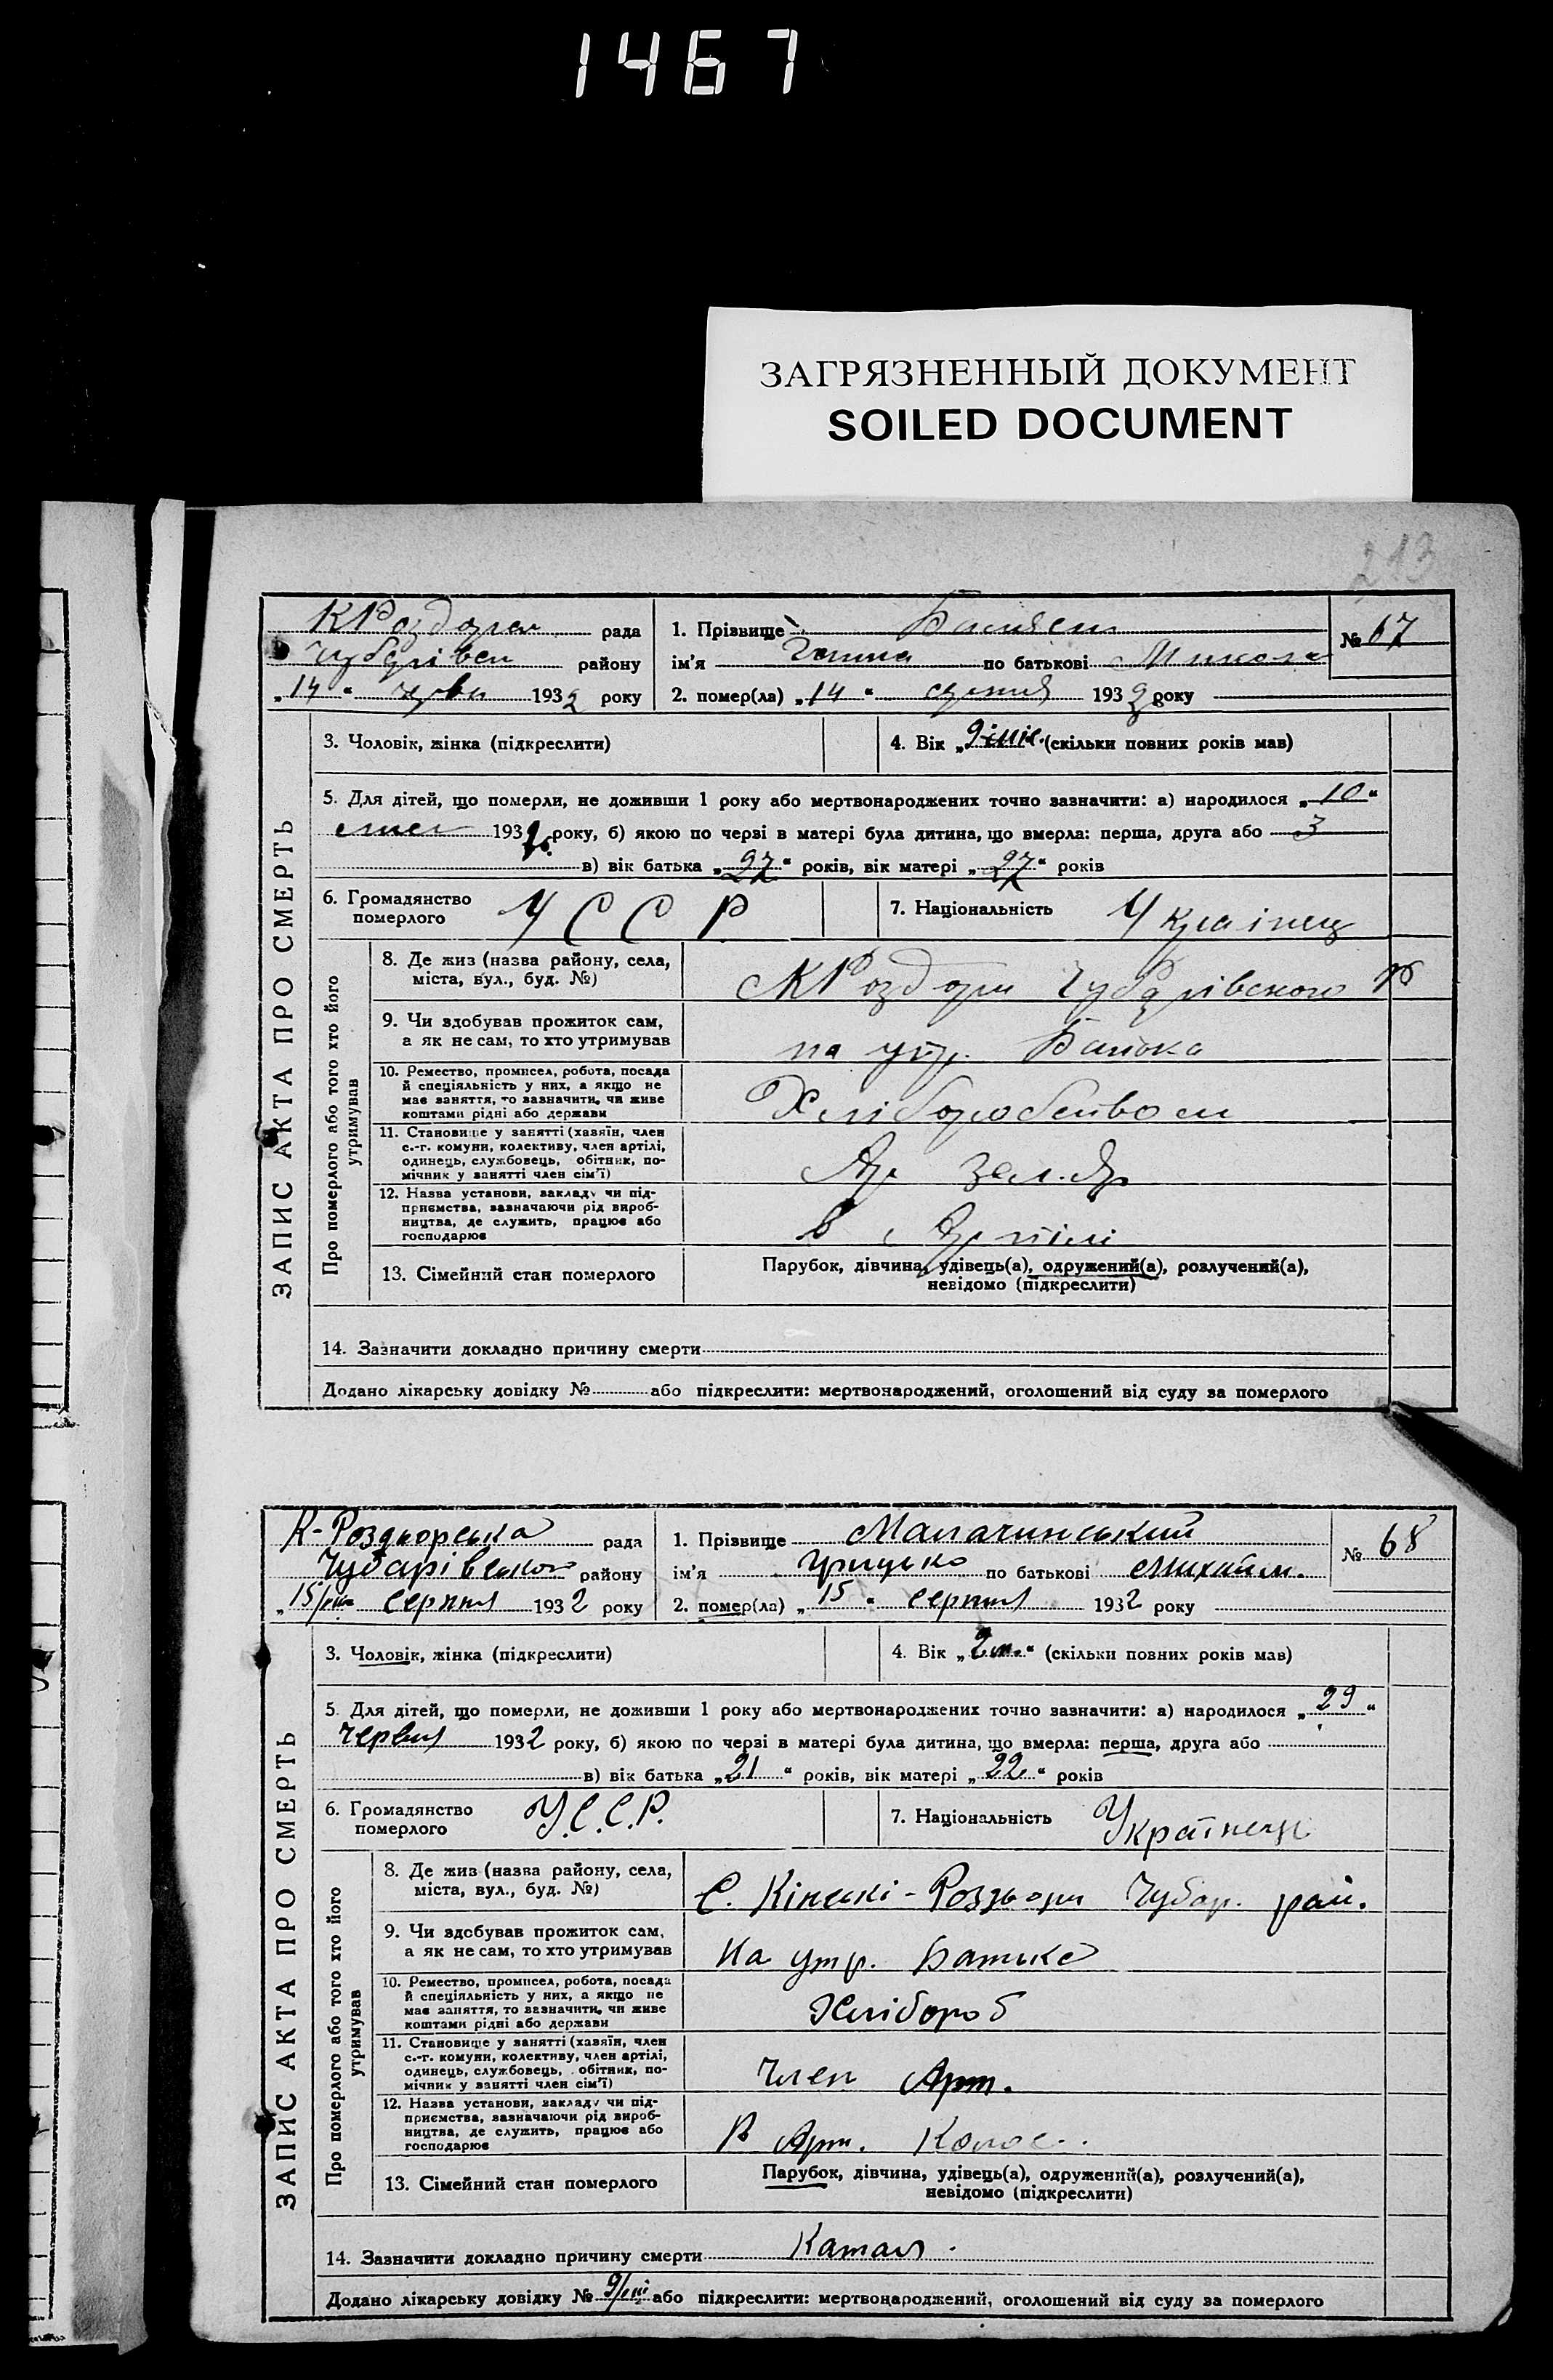 1467
ЗАГРЯЗНЕННЫЙ ДОКУМЕНТ
SOILED DOCUMENT
213
ЗАПИС АКТА ПРО СМЕРТЬ
рада
району
"14" 1932 року
1. Прізвище
ім'я Ганна по батькові Микола
2. помер(ла) "14" 1932 року
№ 67
3. Чоловік, жінка (підкреслити)
4. Вік " (скільки повних років мав)
5. Для дітей, що померли, не доживши 1 року або мертвонароджених точно зазначити: а) народилося "10"
193 року, б) якою по черзі в матері була дитина, що вмерла: перша, друга або 3
в) вік батька "27" років, вік матері "27" років
6. Громадянство
померлого
УССР
7. Національність Українец
Про померлого або того хто його
утримував
8. Де жив (назва району, села,
міста, вул., буд. №)
КРоздори Чубарівського
9. Чи здобував прожиток сам,
а як не сам, то хто утримував
на утр. Батька
10. Ремество, промисел, робота, посада
й спеціяльність у них, а якщо не
має заняття, то зазначити, чи живе
коштами рідні або держави
Хліборобством
11. Становище у занятті (хазяїн, член
с.-г. комуни, колективу, член артілі,
одинець, службовець, обітник, по-
мічник у занятті член сім'ї)
12. Назва установи, закладу чи під-
приємства, зазначаючи рід вироб-
ництва, де служить, працює або
господарює
в Артілі
13. Сімейний стан померлого
Парубок, дівчина, удівець(а), одружений(а), розлучений(а),
невідомо (підкреслити)
14. Зазначити докладно причину смерти
Додано лікарську довідку № або підкреслити: мертвонароджений, оголошений від суду за померлого
ЗАПИС АКТА ПРО СМЕРТЬ
К-Роздорська рада
Чубарівського району
"15/VIII" серпня 1932 року
1. Прізвище Малачинський
ім'я Грицько по батькові Михайл.
2. помер(ла) "15" серпня 1932 року
№ 68
3. Чоловік, жінка (підкреслити)
4. Вік "2 м." (скільки повних років мав)
5. Для дітей, що померли, не доживши 1 року або мертвонароджених точно зазначити: а) народилося "29"
червня 1932 року, б) якою по черзі в матері була дитина, що вмерла: перша, друга або
в) вік батька "21" років, вік матері "22" років
6. Громадянство
померлого
У.С.С.Р.
7. Національність Українець
Про померлого або того хто його
утримував
8. Де жив (назва району, села,
міста, вул., буд. №)
С. Кінські-Роздори Чубар. рай.
9. Чи здобував прожиток сам,
а як не сам, то хто утримував
На утр. Батька
10. Ремество, промисел, робота, посада
й спеціяльність у них, а якщо не
має заняття, то зазначити, чи живе
коштами рідні або держави
Хлібороб
11. Становище у занятті (хазяїн, член
с.-г. комуни, колективу, член артілі,
одинець, службовець, обітник, по-
мічник у занятті член сім'ї)
Член Арт.
12. Назва установи, закладу чи під-
приємства, зазначаючи рід вироб-
ництва, де служить, працює або
господарює
В Арт. Колос.
13. Сімейний стан померлого
Парубок, дівчина, удівець(а), одружений(а), розлучений(а),
невідомо (підкреслити)
14. Зазначити докладно причину смерти Каталя.
Додано лікарську довідку № 9/VIII або підкреслити: мертвонароджений, оголошений від суду за померлого